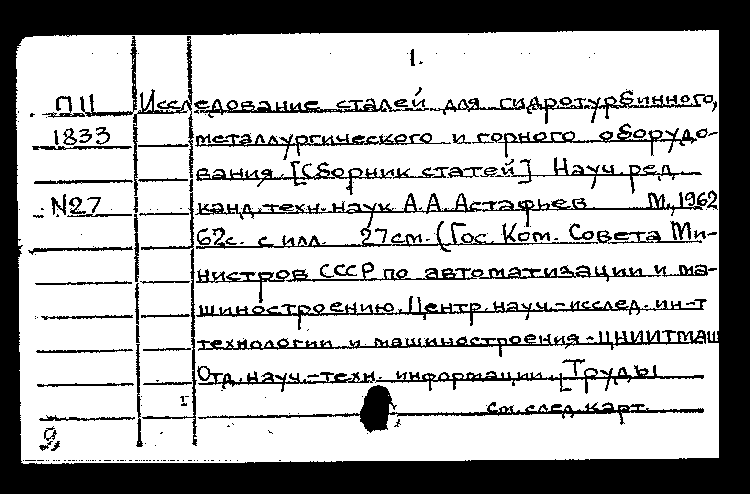 1.
П11 Исследование сталей для гидротурбинного,
1833 металлургического и горного оборудо-
вания. [Сборник статей] Науч. ред.
N27 канд. техн. наук А.А. Астафьев. М., 1962
62с. с илл. 27см. (Гос. Ком. Совета Ми-
нистров СССР по автоматизации и ма-
шиностроению. Центр. науч.-исслед. ин-т
технологии и машиностроения - ЦНИИТМАШ
Отд. науч.-техн. информации. [Труды
I см. след. карт.